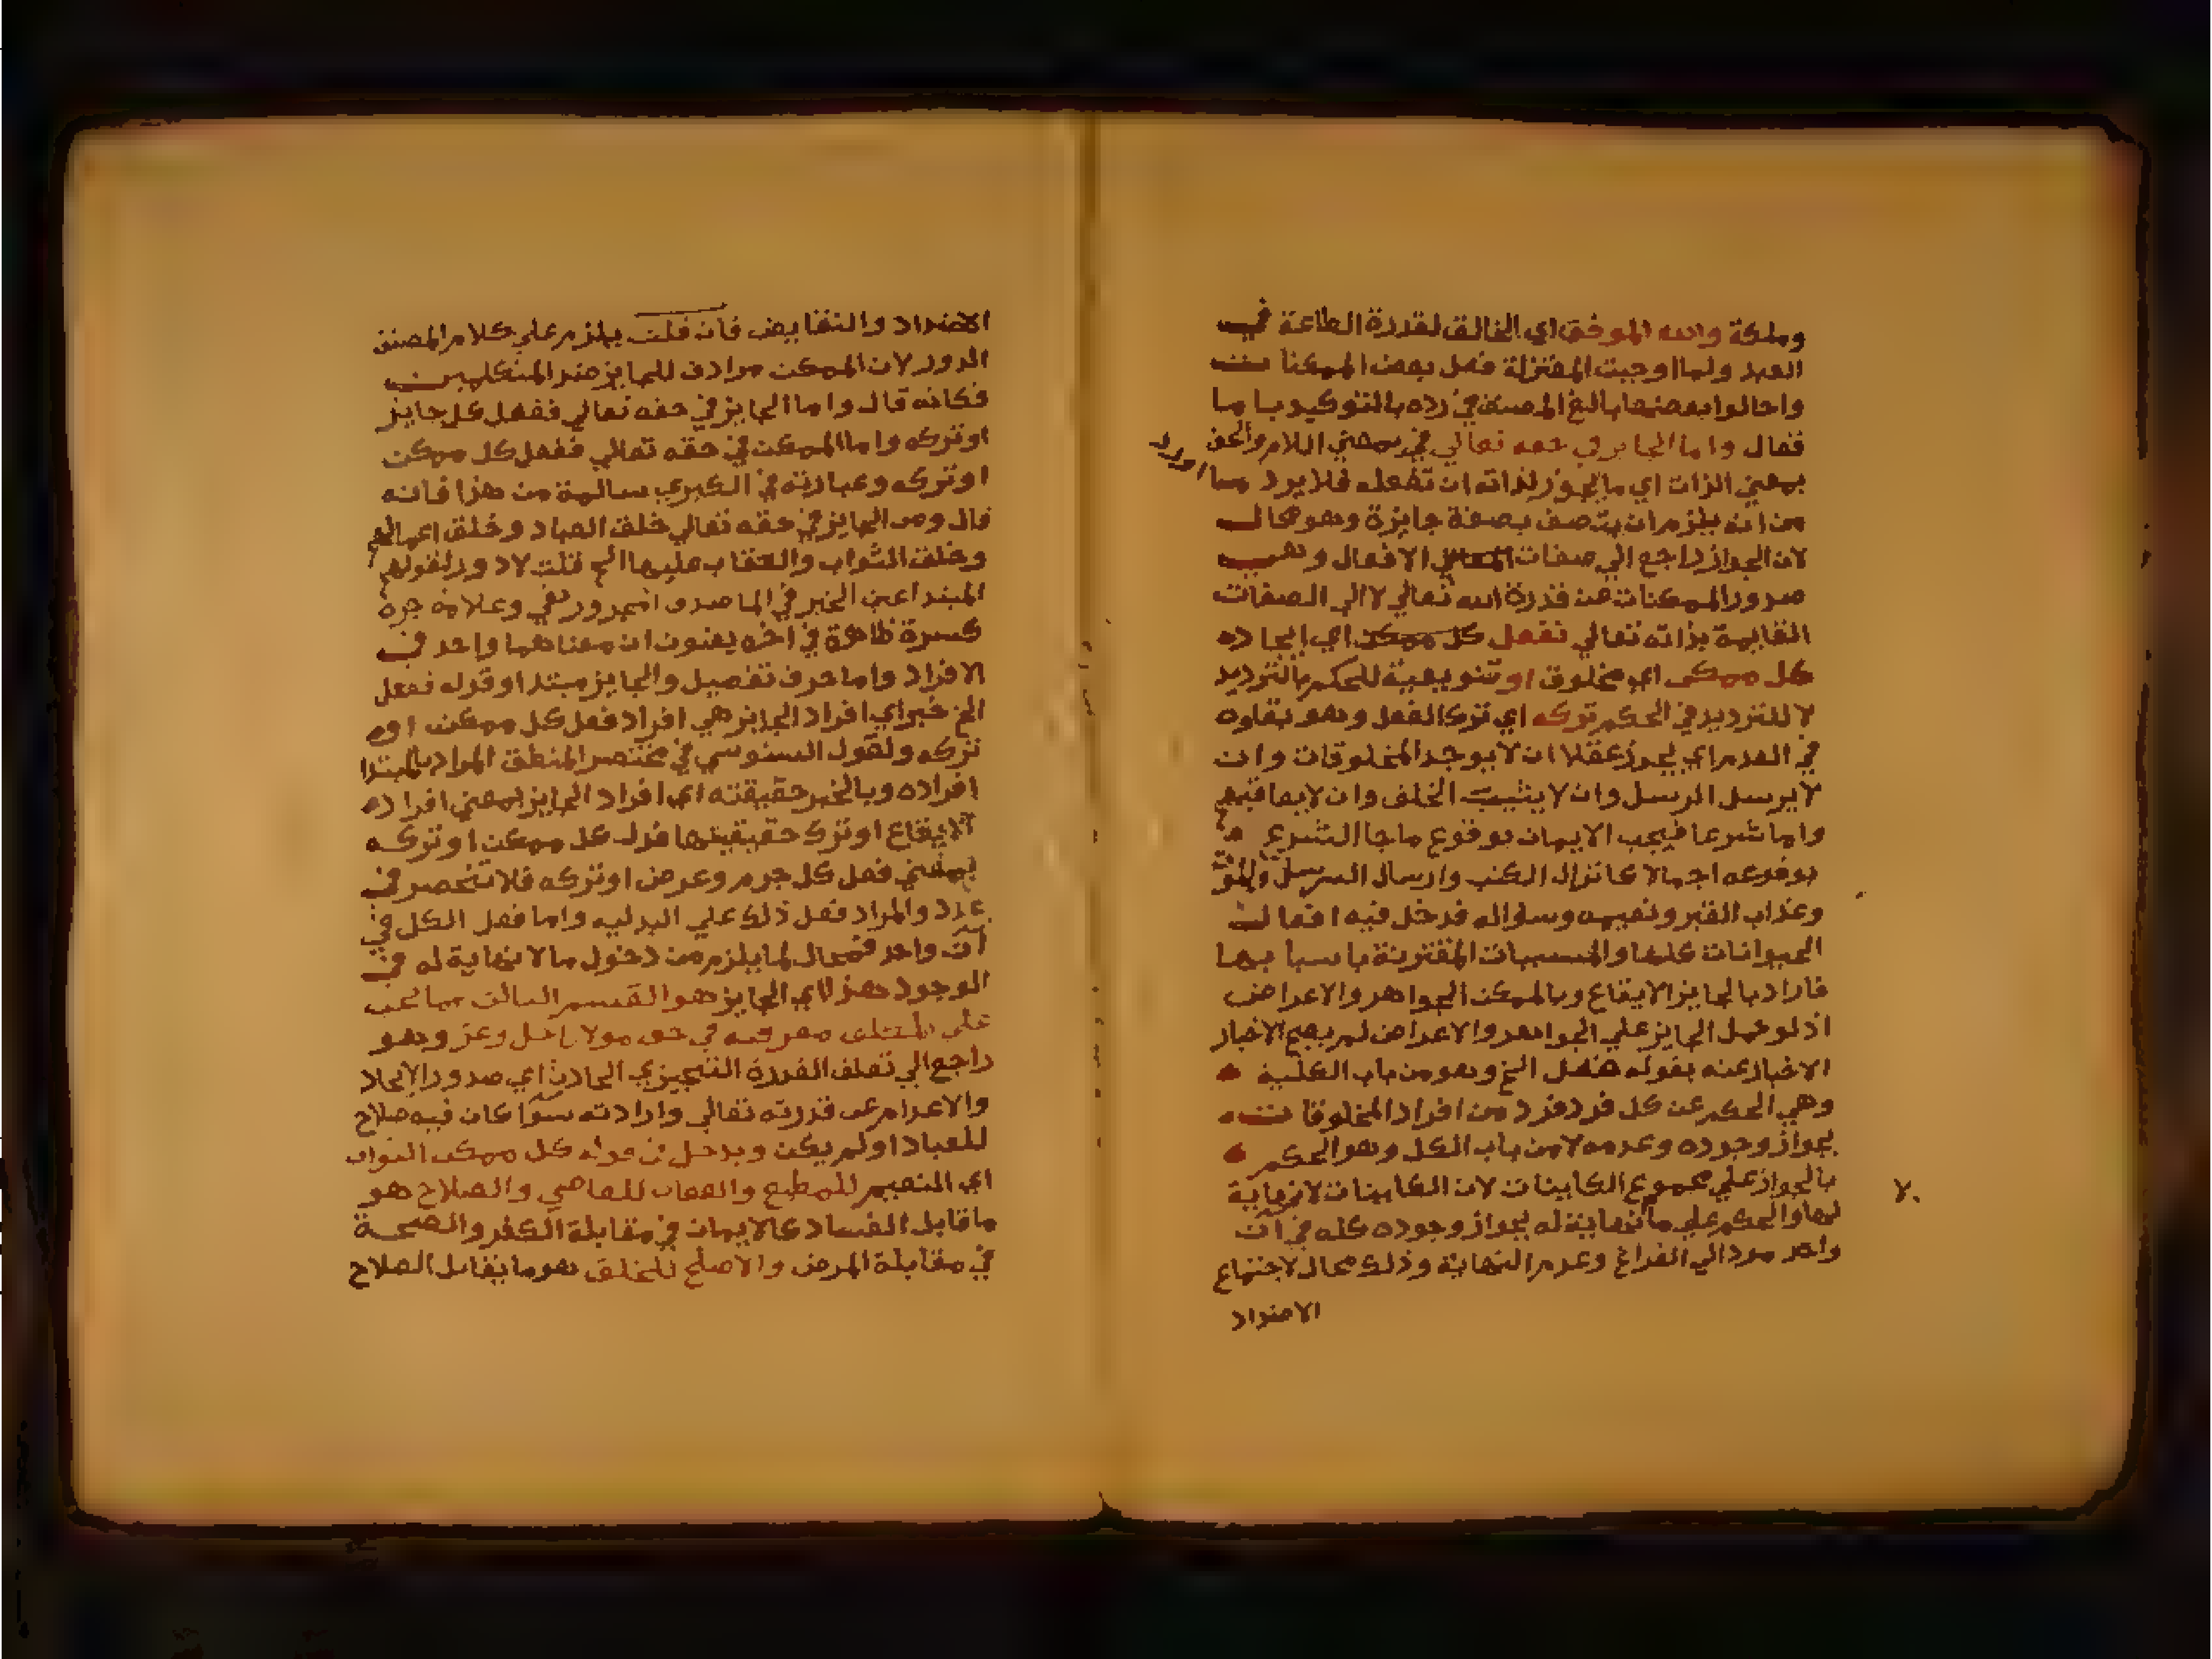 وملكة والله الموفق اي الخالق لقدرة الطاعة في
العبد ولما اوجبت المعتزلة فعل بعض الممكنات
واحالوا بعضها بالغ المصنف في رده بالتوكيد باما
فقال واما الجايز في حقه تعالي في بمعني اللام والحق
بمعني الذات اي ما يجوز لذاته ان تفعله فلا يرد ما اورد
من انه يلزم ان يتصف بصفة جايزة وهو محال
لان الجواز راجع الي صفات الافعال وهي
صدور الممكنات عن قدرة الله تعالي لا الي الصفات
القايمة بذاته تعالي ففعل كل ممكن اي ايجاده
كل ممكن اي مخلوق او تنويعية للحكم بالترديد
لا للترديد في الحكم تركه اي ترك الفعل وهو بقاوه
في العدم اي يجوز عقلا ان لا يوجد المخلوقات وان
لا يرسل الرسل وان لا يثيب الخلق وان لا يعاقبهم
واما شرعا فيجب الايمان بوقوع ما جا الشرع
بوقوعه اجمالا كانزال الكتب وارسال الرسل والموت
وعذاب القبر ونعيمه وسواله فدخل فيه افعال
الحيوانات كلها والمسببات المقترنة باسبابها
فاراد بالجايز الايقاع وبالممكن الجواهر والاعراض
اذ لو حمل الجايز علي الجواهر والاعراض لم يصح الاخبار
الاخبار عنه بقوله ففعل الخ وهو من باب الكلية
وهي الحكم عن كل فرد فرد من افراد المخلوقات
بجواز وجوده وعدمه لا من باب الكل وهو الحكم
بالجواز علي مجموع الكاينات لان الكاينات لا نهاية
لها والحكم علي ما لا نهاية له بجواز وجوده كله في آن
واحد مودا الي الفراغ وعدم النهاية وذلك محال لاجتماع
الاضداد
٧٠
الاضداد والنقايض فان قلت يلزم علي كلام المصنف
الدور لان الممكن مرادف للجايز عند المتكلمين
فكانه قال واما الجايز في حقه تعالي ففعل كل جايز
او تركه واما الممكن في حقه تعالي ففعل كل ممكن
او تركه وعبارته في الكبري سالمة من هذا فانه
قال ومن الجايز في حقه تعالي خلق العباد وخلق اعمالهم
وخلق الثواب والعقاب عليها الخ قلت لا دور لقولهم
المبتدا عين الخبر في الماصدق وعلامة جره
كسرة ظاهرة في اخره يعنون ان معناهما واحد في
الافراد واما حرف تفصيل والجايز مبتدا وقوله ففعل
الخ خبر اي افراد الجايز هي افراد فعل كل ممكن او
تركه ولقول السنوسي في مختصر المنطق المراد بالمبتدا
افراده وبالخبر حقيقته اي افراد الجايز بمعني افراده
الايقاع او ترك حقيقتها فعل كل ممكن او تركه
بمعني فعل كل جرم وعرض او تركه فلا تنحصر في
عدد والمراد فعل ذلك علي البدليه واما فعل الكل في
آن واحد فمحال لما يلزم من دخول ما لا نهاية له في
الوجود هذا اي الجايز هو القسم الثالث مما يجب
علي المكلف معرفته في حق مولانا جل وعز وهو
راجع الي تعلق القدرة التنجيزي الحادث اي صدور الايجاد
والاعدام عن قدرته تعالي وارادته سوآ كان فيه صلاح
للعباد او لم يكن ويدخل في قوله كل ممكن الثواب
اي التنعيم للمطيع والعقاب للعاصي والصلاح هو
ما قابل الفساد كالايمان في مقابلة الكفر والصحة
في مقابلة المرض والاصلح للخلق هو ما يقابل الصلاح